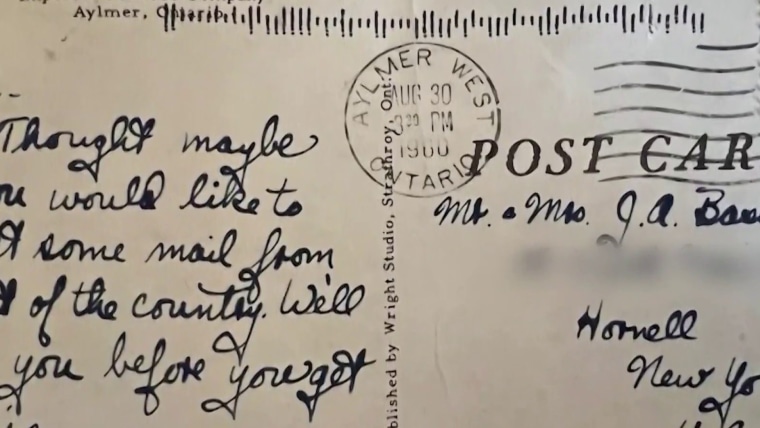 Aylmer, Ontario.
AYLMER WEST
AUG 30
PM
ONTARIO
POST CAR
Thought maybe
ou would like to
some mail from
of the country. We'll
you before you get
blished by Wright Studio, Strathroy, Ont.
Mr. & Mrs. J.A. Bas
Hornell
New Yo